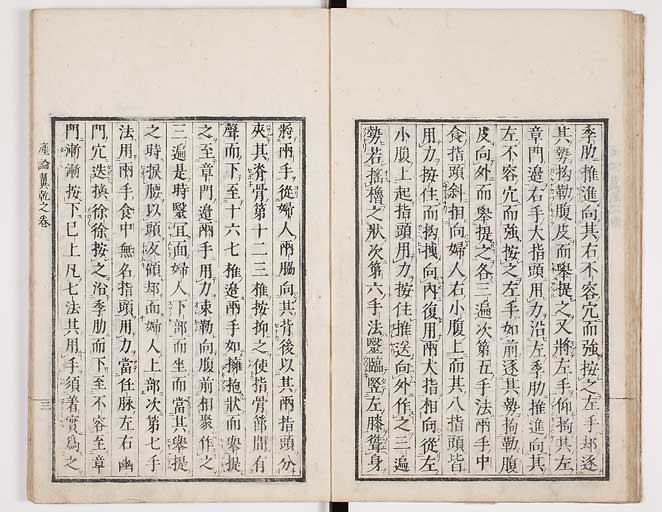 季肋推進向其右不容宂而強按之左手却逐
其勢拘勒腹皮而舉提之又將左手仰拘其左
章門邉右手大指頭用力沿左季肋推進向其
左不容宂而強按之左手如前逐其勢拘勒腹
皮向外而舉提之各三遍次第五手法兩手中
食指頭斜相向婦人右小腹上而其八指頭皆
用力按住而拘拽向內復用兩大指相向從左
小腹上起指頭用力按住推送向外作之三遍
勢若搖櫓之狀次第六手法毉臨竪左膝聳身
將兩手從婦人兩脇向其背後以其兩指頭分
夾其脊骨第十二三椎按抑之使指骨節間有
聲而下至十六七椎邉兩手如擁抱狀而舉提
之至章門邉兩手用力束勒向腹前相聚作之
三遍是時毉宜面婦人下部而坐而當其舉提
之時捩腰以頭反顧却面婦人上部次第七手
法用兩手食中無名指頭用力當任脉左右幽
門宂迭換徐徐按之沿季肋而下至不容至章
門漸漸按下已上凡七法其用手須着實爲之
產論翼乾之卷
三